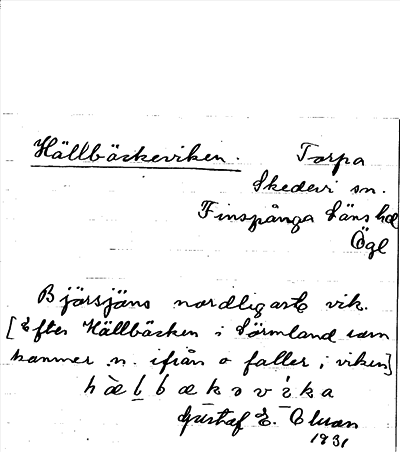 Hällbäckeviken.
Torpa
Skedevi sn.
Finspånga läns hd
Ögl
Björsjöns nordligaste vik.
[Efter Hällbäcken i Sörmland som
kommer n. ifrån o faller i viken]
Gustaf E.
1931